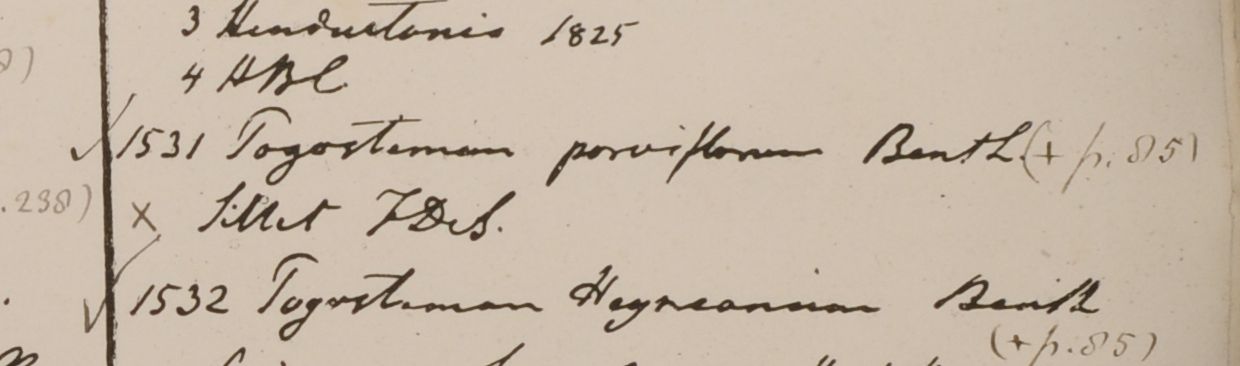 3 Hindustania 1825
4 HBC
1531 Pogostemon parviflorum Benth (+ p. 85)
.238) × Sillet FDeS.
1532 Pogostemon Heyneanum Benth
(+ p. 85)